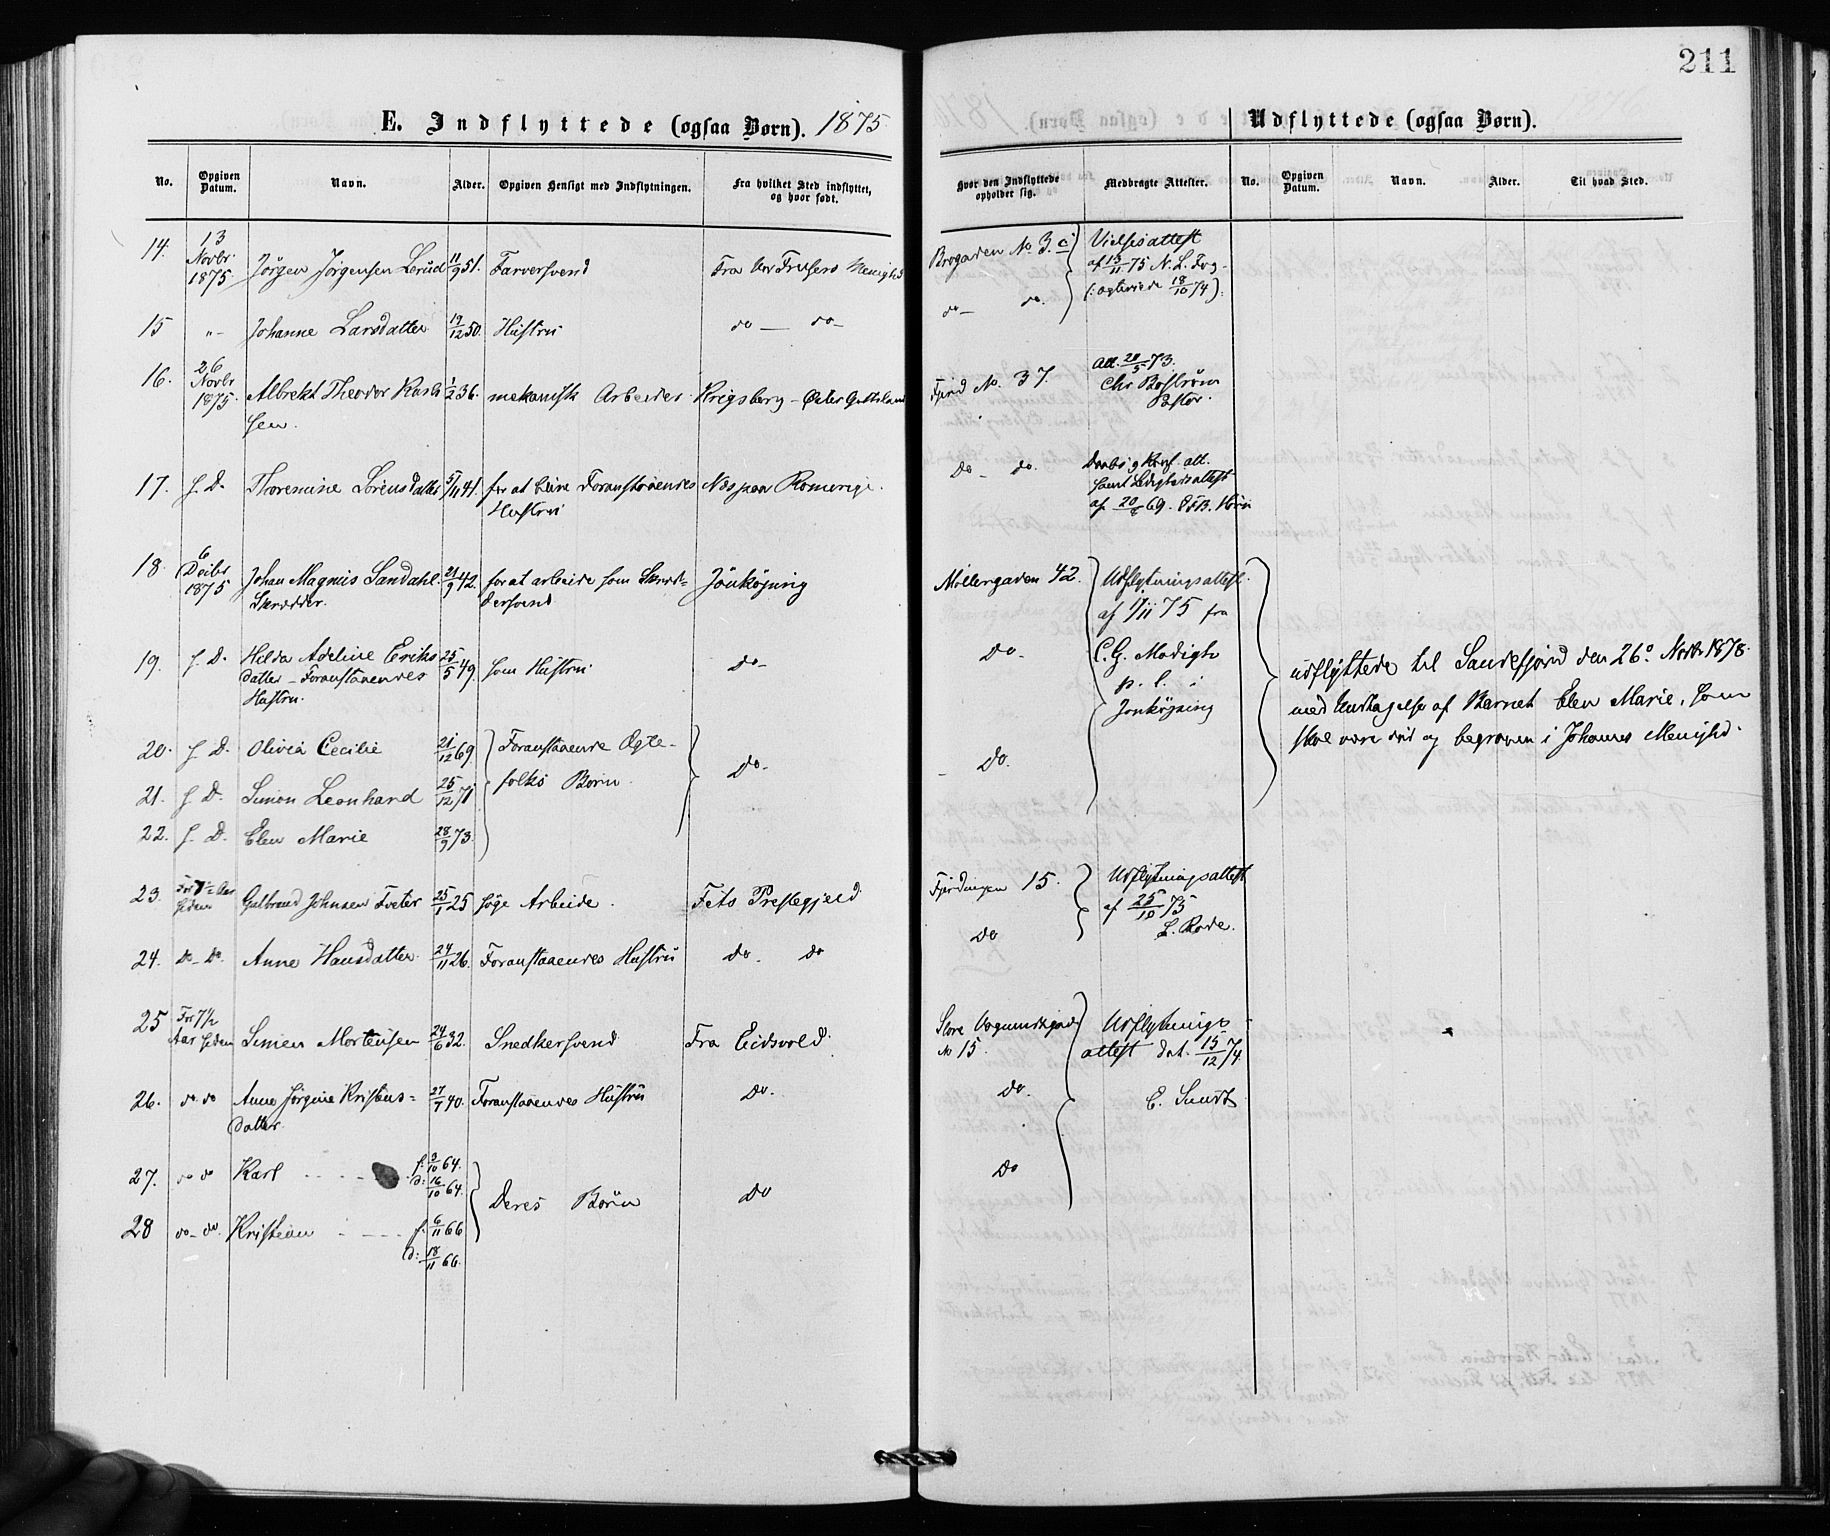 211
E. Indflyttede (ogsaa Børn). 1875
Udflyttede (ogsaa Børn).
No. Opgiven Datum. Navn. Alder. Opgiven Hensigt med Indflytningen. Fra hvilket Sted indflyttet, og hvor født.
Hvor den Indflyttede opholder sig. Medbragte Attester. No. Opgiven Datum. Navn. Alder. Til hvad Sted.
14. 13 Novbr. 1875 Jörgen Jörgensen Lerud 11/9 51. Farversvend Fra Vor Frelsers Menighd
Brogaden No 3. c Vielsesattest
af 13/11 75 N. L. Fog
(: ægteviede 18/10 74)
15 "- Johanne Larsdatter 19/12 50. Hustru do — do-
do- do.
16. 26 Novbr 1875. Albrekt Theodor Karls 1/2 36. mekanisk Arbeider Krigsberg - Öster Gothland
sen.
Fjerd No. 37. Att. 20/5 73.
Chr Boström
Pastor.
17. s. D. Thoremine Lorens datter 5/11 41. for at blive Foranstaaendes Næs paa Romerige.
Hustru
Do- do. Daabs og Konf. att.
samt Ledighedsattest
af 20/6 69.
18. 6 Decbr 1875 Johan Magnus Sandahl. 21/9 42. for at arbeide som Skræd- Jönköping
Skrædder. dersvend
Møllergaden 42. Udflytningsattest.
af 1/11 75 fra
19. s. D. Hilda Adeline Eriks 25/5 49. som Hustru do-
datter - Foranstaaendes
Hustru.
do- C. G. Modigh
p. l. i
Jonköping
udflyttede til Sandefjord den 26de Novbr 1878.
med Undtagelse af Barnet Elen Marie, som
skal være död og begraven i Johannes Menighd.
20. s. D. Olivia Cecilie 21/12 69. Foranstaaende Ægte-
21. s. D. Simon Leonhard 25/12 71 folks Børn. do-
22. s. D. Elen Marie 28/9 73.
Do.
23. For 1 1/2 Aar siden Gulbrand Johnsen Tveter 25/1 25 søge Arbeide. Fets Prestegjeld
Fjerdingen 15. Udflytningsattest
af 25/10 75
L. Rode.
24. do-do. Anne Hansdatter 24/11 26. Foranstaaendes Hustru do. do
Do
25 For 7 1/2 Aar siden Simen Mortensen 24/6 32. Snedkersvend Fra Eidsvold.
Store Vognmandsgade Udflytnings
No 15. attest dat. 15/12 74.
26. do do Anne Jörgine Kristens= 27/7 40. Foranstaaendes Hustru Do.
datter.
Do. E. Sundt
27. do do Karl f. 3/10 64.
d: 16/10 64.
Deres Børn Do
Do
28 do-do. Kristian f. 6/11 66
d: 18/11 66.